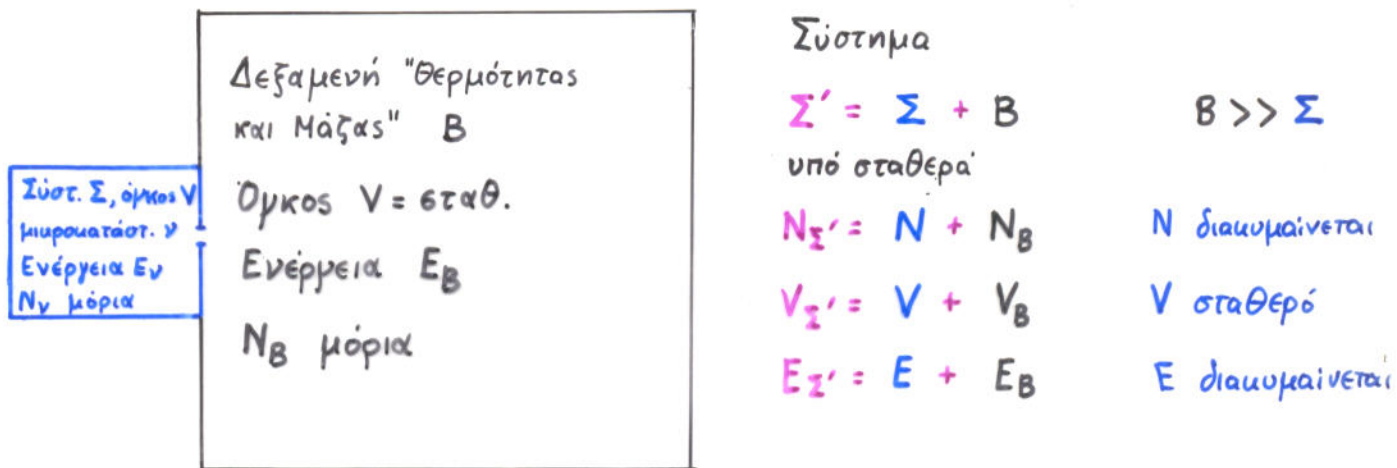 Σύστ. Σ, όγκος V
μικροκατάστ. ν
Ενέργεια Eν
Nν μόρια
Δεξαμενή "Θερμότητας
και Μάζας" B
Όγκος V = σταθ.
Ενέργεια EB
NB μόρια
Σύστημα
Σ' = Σ + B B >> Σ
υπό σταθερά
NΣ' = N + NB N διακυμαίνεται
VΣ' = V + VB V σταθερό
EΣ' = E + EB E διακυμαίνεται